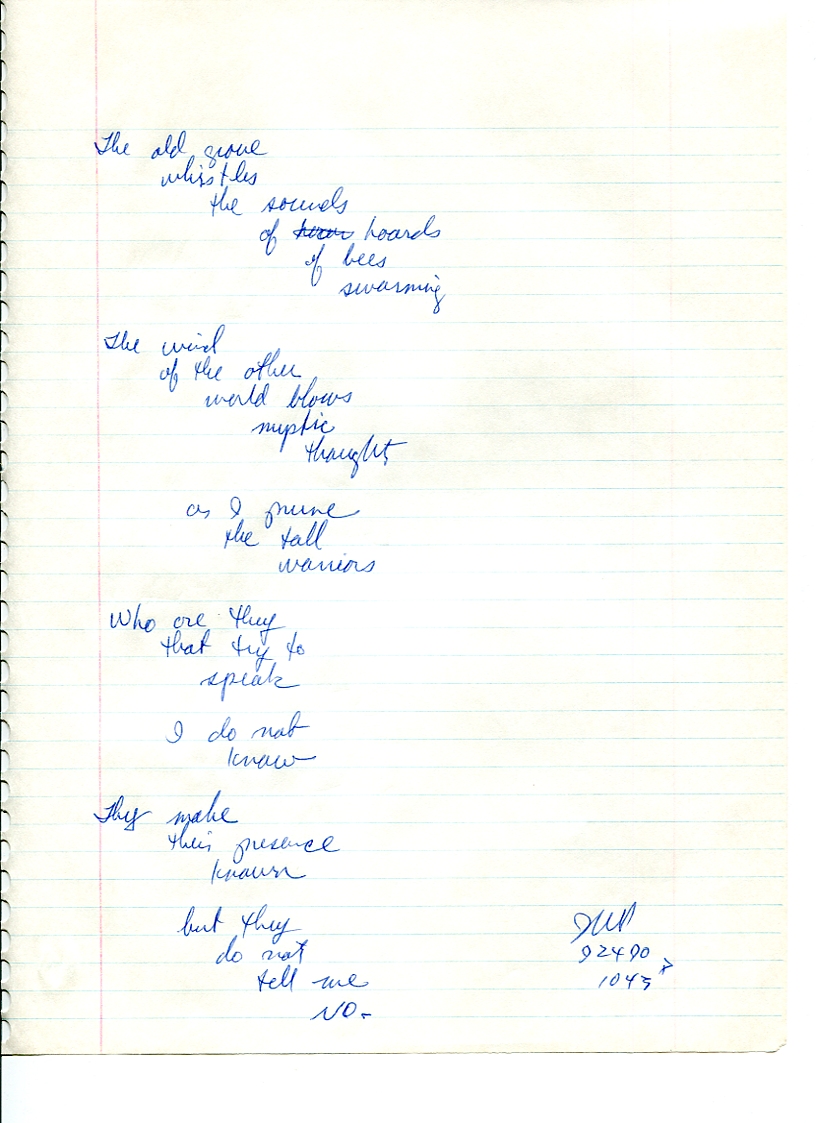 The old grove
whistles
the sounds
of hoards
of bees
swarming
The wind
of the other
world blows
myptic
thought
as I prune
the tall
warriors
Who are they
that try to
speak
I do not
know
They make
their presence
known
but they
do not
tell me
NO-
92490
1045 P